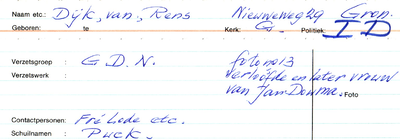 Naam etc.: Dijk, van, Rens Nieuweweg 29 Gron.
Geboren: te Kerk: G. Politiek: ID
Verzetsgroep : G.D.N. foto no 13
Verzetswerk : verloofde en later vrouw
van Jan Douma. Foto
Contactpersonen: Fré Lede etc.
Schuilnamen : Puck.